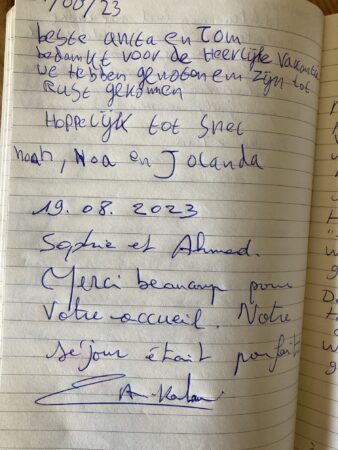 /08/23
beste anita en Tom
bedankt voor de Heerlijke vakantie
we Hebben genoten em zijn tot
Rust gekomen
Hoppelijk tot snel
noah, Noa en Jolanda
19. 08. 2023
Sophie et Ahmed.
Merci beaucoup pour
votre accueil. Notre
séjour était parfait